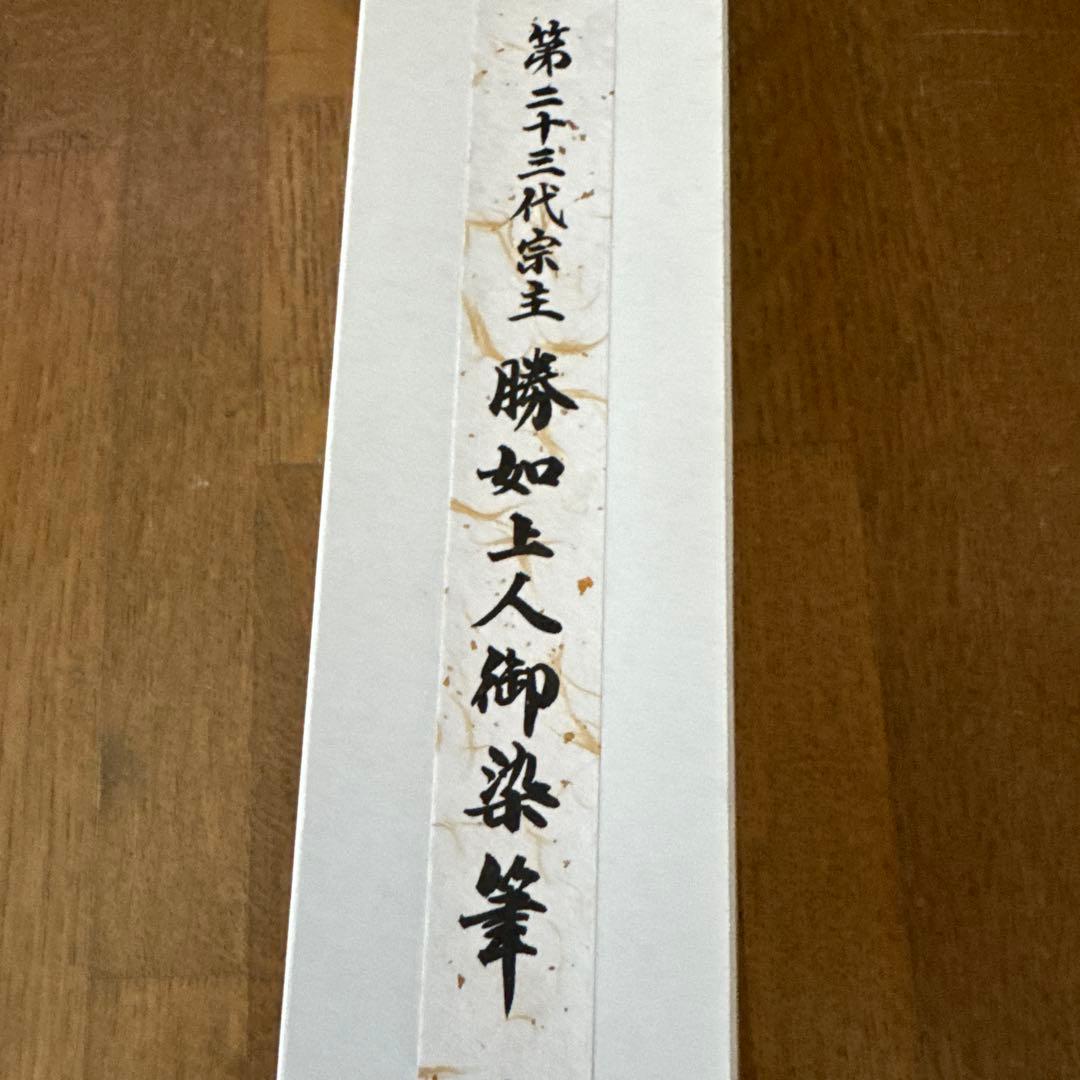 第二十三代宗主 勝如上人御染筆